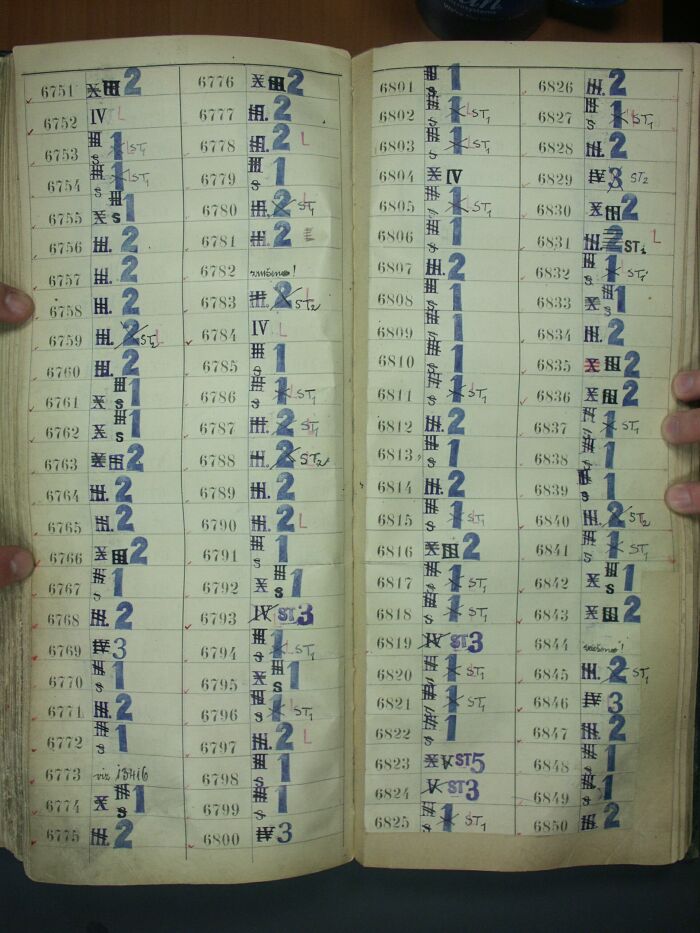 6751 X III 2
6752 IV L
6753 III s 1 L ST1
6754 III s 1 L ST1
6755 X III s 1
6756 III. 2
6757 III. 2
6758 III. 2
6759 III. 2 ST2 L
6760 III. 2
6761 X III s 1
6762 X III s 1
6763 X III 2
6764 III. 2
6765 III. 2
6766 X III 2
6767 III s 1
6768 III. 2
6769 IV 3
6770 III s 1
6771 III. 2
6772 III s 1
6773 viz 13416
6774 X III s 1
6775 III. 2
6776 X III 2
6777 III. 2 L
6778 III. 2 L
6779 III s 1
6780 III. 2 L ST1
6781 III. 2
6782
6783 III. 2 L ST2
6784 IV L
6785 III s 1
6786 III s 1 L ST1
6787 III. 2 L ST1
6788 III. 2 ST2
6789 III. 2
6790 III. 2 L
6791 III s 1
6792 X III s 1
6793 IV ST3
6794 III s 1 L ST1
6795 X III s 1
6796 III s 1 L ST1
6797 III. 2 L
6798 III s 1
6799 III s 1
6800 IV 3
6801 III s 1
6802 III s 1 L ST1
6803 III s 1 L ST1
6804 X IV
6805 III s 1 L ST1
6806 III s 1
6807 III. 2
6808 III s 1
6809 III s 1
6810 III s 1
6811 III s 1 L ST1
6812 III. 2
6813 III s 1
6814 III. 2
6815 III s 1 L ST1
6816 X III 2
6817 III s 1 ST1
6818 III s 1 ST1
6819 IV ST3
6820 III s 1 L ST1
6821 III s 1 ST1
6822 III s 1
6823 X V ST5
6824 V ST3
6825 III s 1 ST1
6826 III. 2
6827 III s 1 L ST1
6828 III. 2
6829 IV 3 ST2
6830 X III 2
6831 III. 2 ST1 L
6832 III s 1 ST1
6833 X III s 1
6834 III. 2
6835 X III 2
6836 X III 2
6837 III s 1 ST1
6838 III s 1
6839 III s 1
6840 III. 2 ST2
6841 III s 1 ST1
6842 X III s 1
6843 X III 2
6844
6845 III. 2 ST1
6846 IV 3
6847 III. 2
6848 III s 1
6849 III s 1
6850 III. 2